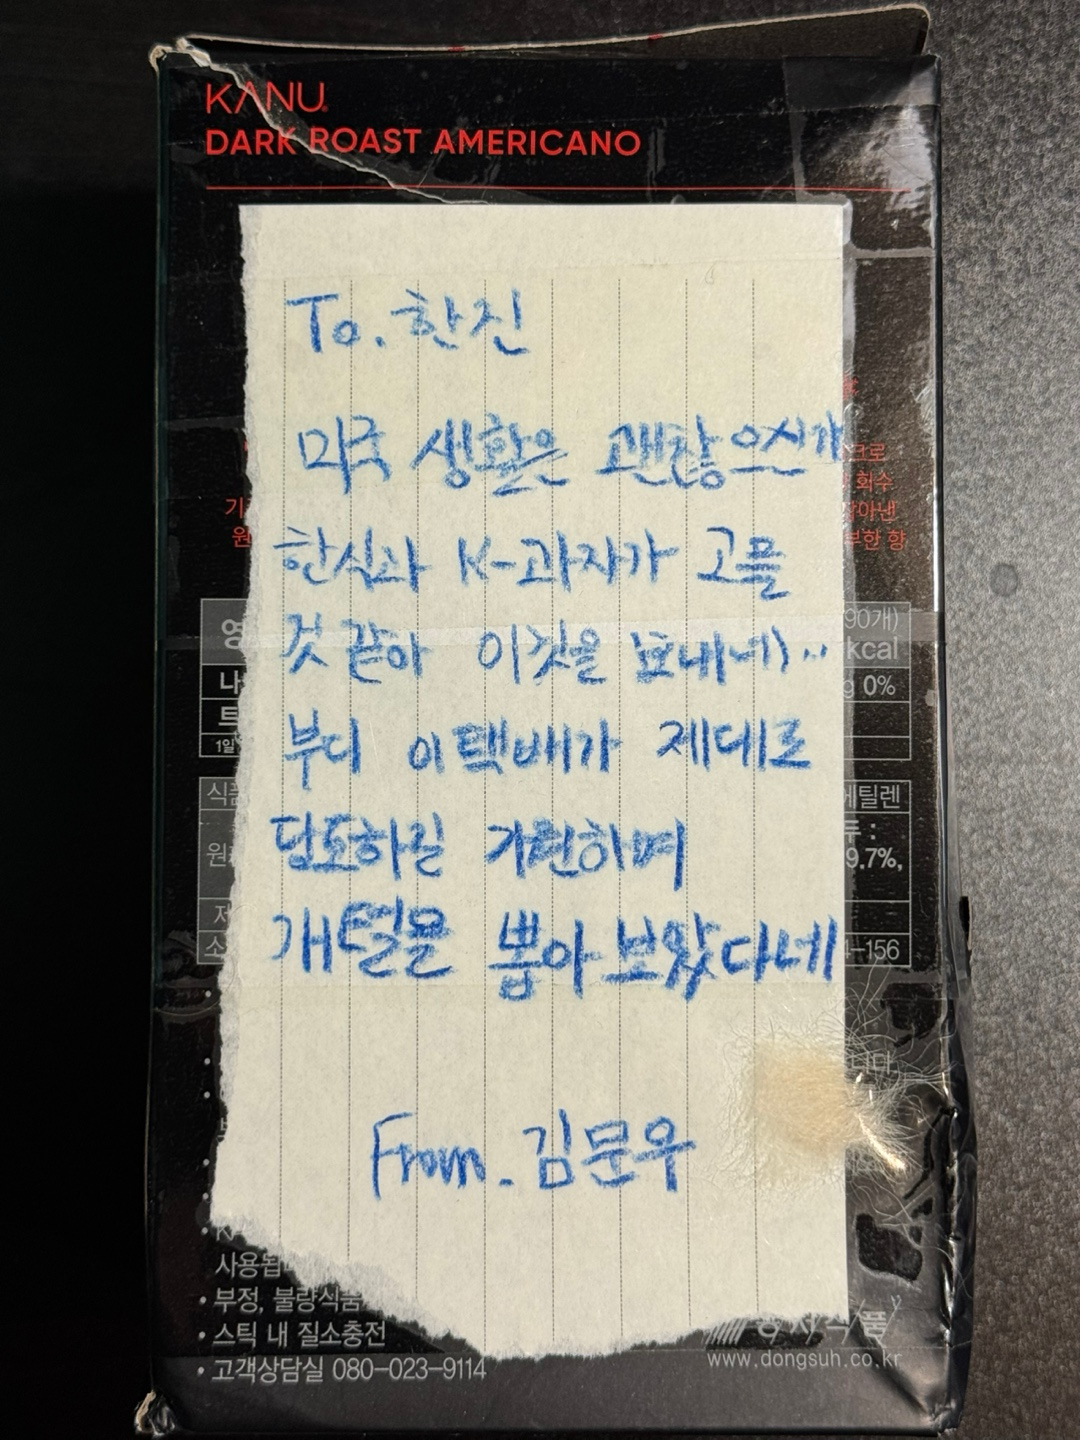 KANU
DARK ROAST AMERICANO
To. 한진
미국 생활은 괜찮으신가
한식과 K-과자가 고플
것 같아 이것을 보내네)..
부디 이 택배가 제대로
당도하길 기원하며
개털을 뽑아 보았다네
From. 김문우
크로
회수
잡아낸
부한 향
90개)
kcal
0%
에틸렌
두 :
9.7%,
-156
니다.
사용됩
• 부정, 불량식품
• 스틱 내 질소충전
• 고객상담실 080-023-9114
동서식품
www.dongsuh.co.kr